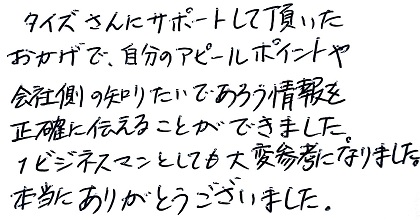 タイズさんにサポートして頂いた
おかげで、自分のアピールポイントや
会社側の知りたいであろう情報を
正確に伝えることができました。
1ビジネスマンとしても大変参考になりました。
本当にありがとうございました。